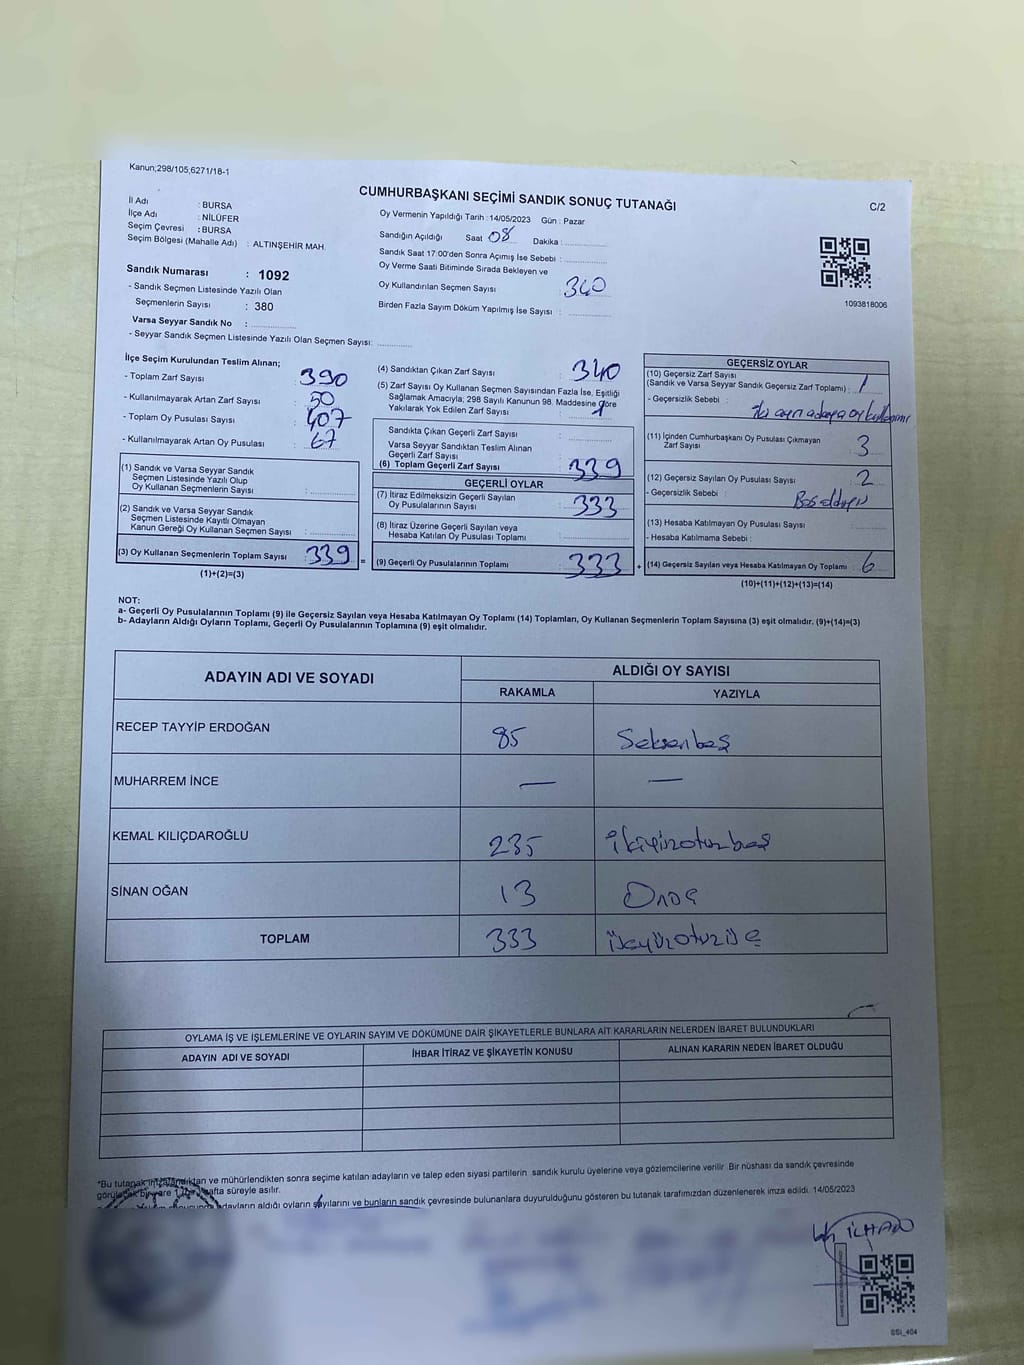 Kanun;298/105,6271/18-1
CUMHURBAŞKANI SEÇİMİ SANDIK SONUÇ TUTANAĞI
C/2
İl Adı : BURSA
İlçe Adı : NİLÜFER
Seçim Çevresi : BURSA
Seçim Bölgesi (Mahalle Adı) : ALTINŞEHİR MAH.
Sandık Numarası : 1092
- Sandık Seçmen Listesinde Yazılı Olan
Seçmenlerin Sayısı : 380
Varsa Seyyar Sandık No :
- Seyyar Sandık Seçmen Listesinde Yazılı Olan Seçmen Sayısı:
Oy Vermenin Yapıldığı Tarih :14/05/2023 Gün : Pazar
Sandığın Açıldığı Saat 08 Dakika :
Sandık Saat 17:00'den Sonra Açımış İse Sebebi :
Oy Verme Saati Bitiminde Sırada Bekleyen ve
Oy Kullandırılan Seçmen Sayısı : 340
Birden Fazla Sayım Döküm Yapılmış İse Sayısı :
1093818006
İlçe Seçim Kurulundan Teslim Alınan;
- Toplam Zarf Sayısı : 390
- Kullanılmayarak Artan Zarf Sayısı : 50
- Toplam Oy Pusulası Sayısı : 407
- Kullanılmayarak Artan Oy Pusulası : 67
(1) Sandık ve Varsa Seyyar Sandık
Seçmen Listesinde Yazılı Olup
Oy Kullanan Seçmenlerin Sayısı :
(2) Sandık ve Varsa Seyyar Sandık
Seçmen Listesinde Kayıtlı Olmayan
Kanun Gereği Oy Kullanan Seçmen Sayısı :
(3) Oy Kullanan Seçmenlerin Toplam Sayısı : 339 =
(1)+(2)=(3)
(4) Sandıktan Çıkan Zarf Sayısı : 340
(5) Zarf Sayısı Oy Kullanan Seçmen Sayısından Fazla İse, Eşitliği
Sağlamak Amacıyla; 298 Sayılı Kanunun 98. Maddesine Göre
Yakılarak Yok Edilen Zarf Sayısı : 1
Sandıkta Çıkan Geçerli Zarf Sayısı :
Varsa Seyyar Sandıktan Teslim Alınan
Geçerli Zarf Sayısı :
(6) Toplam Geçerli Zarf Sayısı : 339
GEÇERLİ OYLAR
(7) İtiraz Edilmeksizin Geçerli Sayılan
Oy Pusulalarının Sayısı : 333
(8) İtiraz Üzerine Geçerli Sayılan veya
Hesaba Katılan Oy Pusulası Toplamı :
(9) Geçerli Oy Pusulalarının Toplamı : 333 +
GEÇERSİZ OYLAR
(10) Geçersiz Zarf Sayısı
(Sandık ve Varsa Seyyar Sandık Geçersiz Zarf Toplamı) : 1
- Geçersizlik Sebebi : iki ayrı adaya oy kullanımı
(11) İçinden Cumhurbaşkanı Oy Pusulası Çıkmayan
Zarf Sayısı : 3
(12) Geçersiz Sayılan Oy Pusulası Sayısı : 2
- Geçersizlik Sebebi : Boş olduğu
(13) Hesaba Katılmayan Oy Pusulası Sayısı :
- Hesaba Katılmama Sebebi :
(14) Geçersiz Sayılan veya Hesaba Katılmayan Oy Toplamı : 6
(10)+(11)+(12)+(13)=(14)
NOT:
a- Geçerli Oy Pusulalarının Toplamı (9) ile Geçersiz Sayılan veya Hesaba Katılmayan Oy Toplamı (14) Toplamları, Oy Kullanan Seçmenlerin Toplam Sayısına (3) eşit olmalıdır, (9)+(14)=(3)
b- Adayların Aldığı Oyların Toplamı, Geçerli Oy Pusulalarının Toplamına (9) eşit olmalıdır.
ADAYIN ADI VE SOYADI
ALDIĞI OY SAYISI
RAKAMLA YAZIYLA
RECEP TAYYİP ERDOĞAN 85 Seksenbeş
MUHARREM İNCE — —
KEMAL KILIÇDAROĞLU 235 ikiyüzotuzbeş
SİNAN OĞAN 13 Onüç
TOPLAM 333 üçyüzotuzüç
OYLAMA İŞ VE İŞLEMLERİNE VE OYLARIN SAYIM VE DÖKÜMÜNE DAİR ŞİKAYETLERLE BUNLARA AİT KARARLARIN NELERDEN İBARET BULUNDUKLARI
ADAYIN ADI VE SOYADI İHBAR İTİRAZ VE ŞİKAYETİN KONUSU ALINAN KARARIN NEDEN İBARET OLDUĞU
*Bu tutanak imzalandıktan ve mühürlendikten sonra seçime katılan adayların ve talep eden siyasi partilerin sandık kurulu üyelerine veya gözlemcilerine verilir. Bir nüshası da sandık çevresinde
görülecek bir yere 1 hafta süreyle asılır.
adayların aldığı oyların sayılarını ve bunların sandık çevresinde bulunanlara duyurulduğunu gösteren bu tutanak tarafımızdan düzenlenerek imza edildi. 14/05/2023
İLHAN
SSI_404